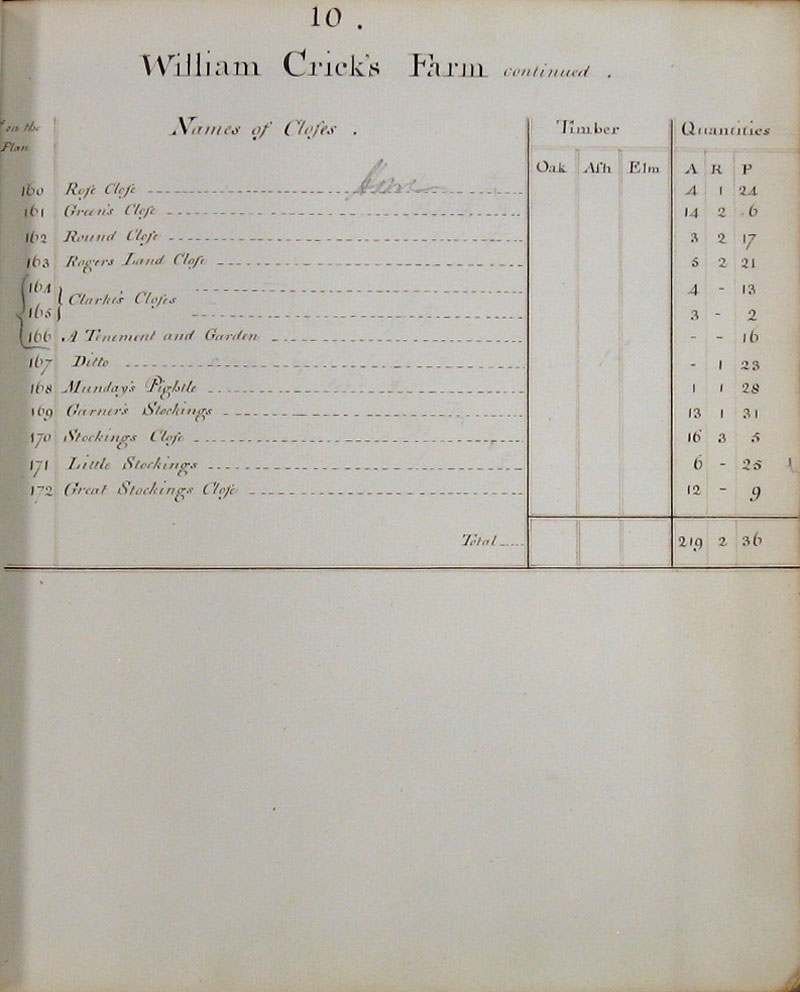 10 .
William Crick's Farm continued .
on the Plan
Names of Closes .
Timber
Quantities
Oak Ash Elm A R P
160 Rose Close 4 1 24
161 Green's Close 14 2 6
162 Round Close 3 2 17
163 Rogers Land Close 5 2 21
164 4 - 13
Clarke's Closes
165 3 - 2
166 A Tenement and Garden - - 16
167 Ditto - 1 23
168 Munday's Pightle 1 1 28
169 Garner's Stockings 13 1 31
170 Stockings Close 16 3 5
171 Little Stockings 6 - 25
172 Great Stockings Close 12 - 9
Total 219 2 36